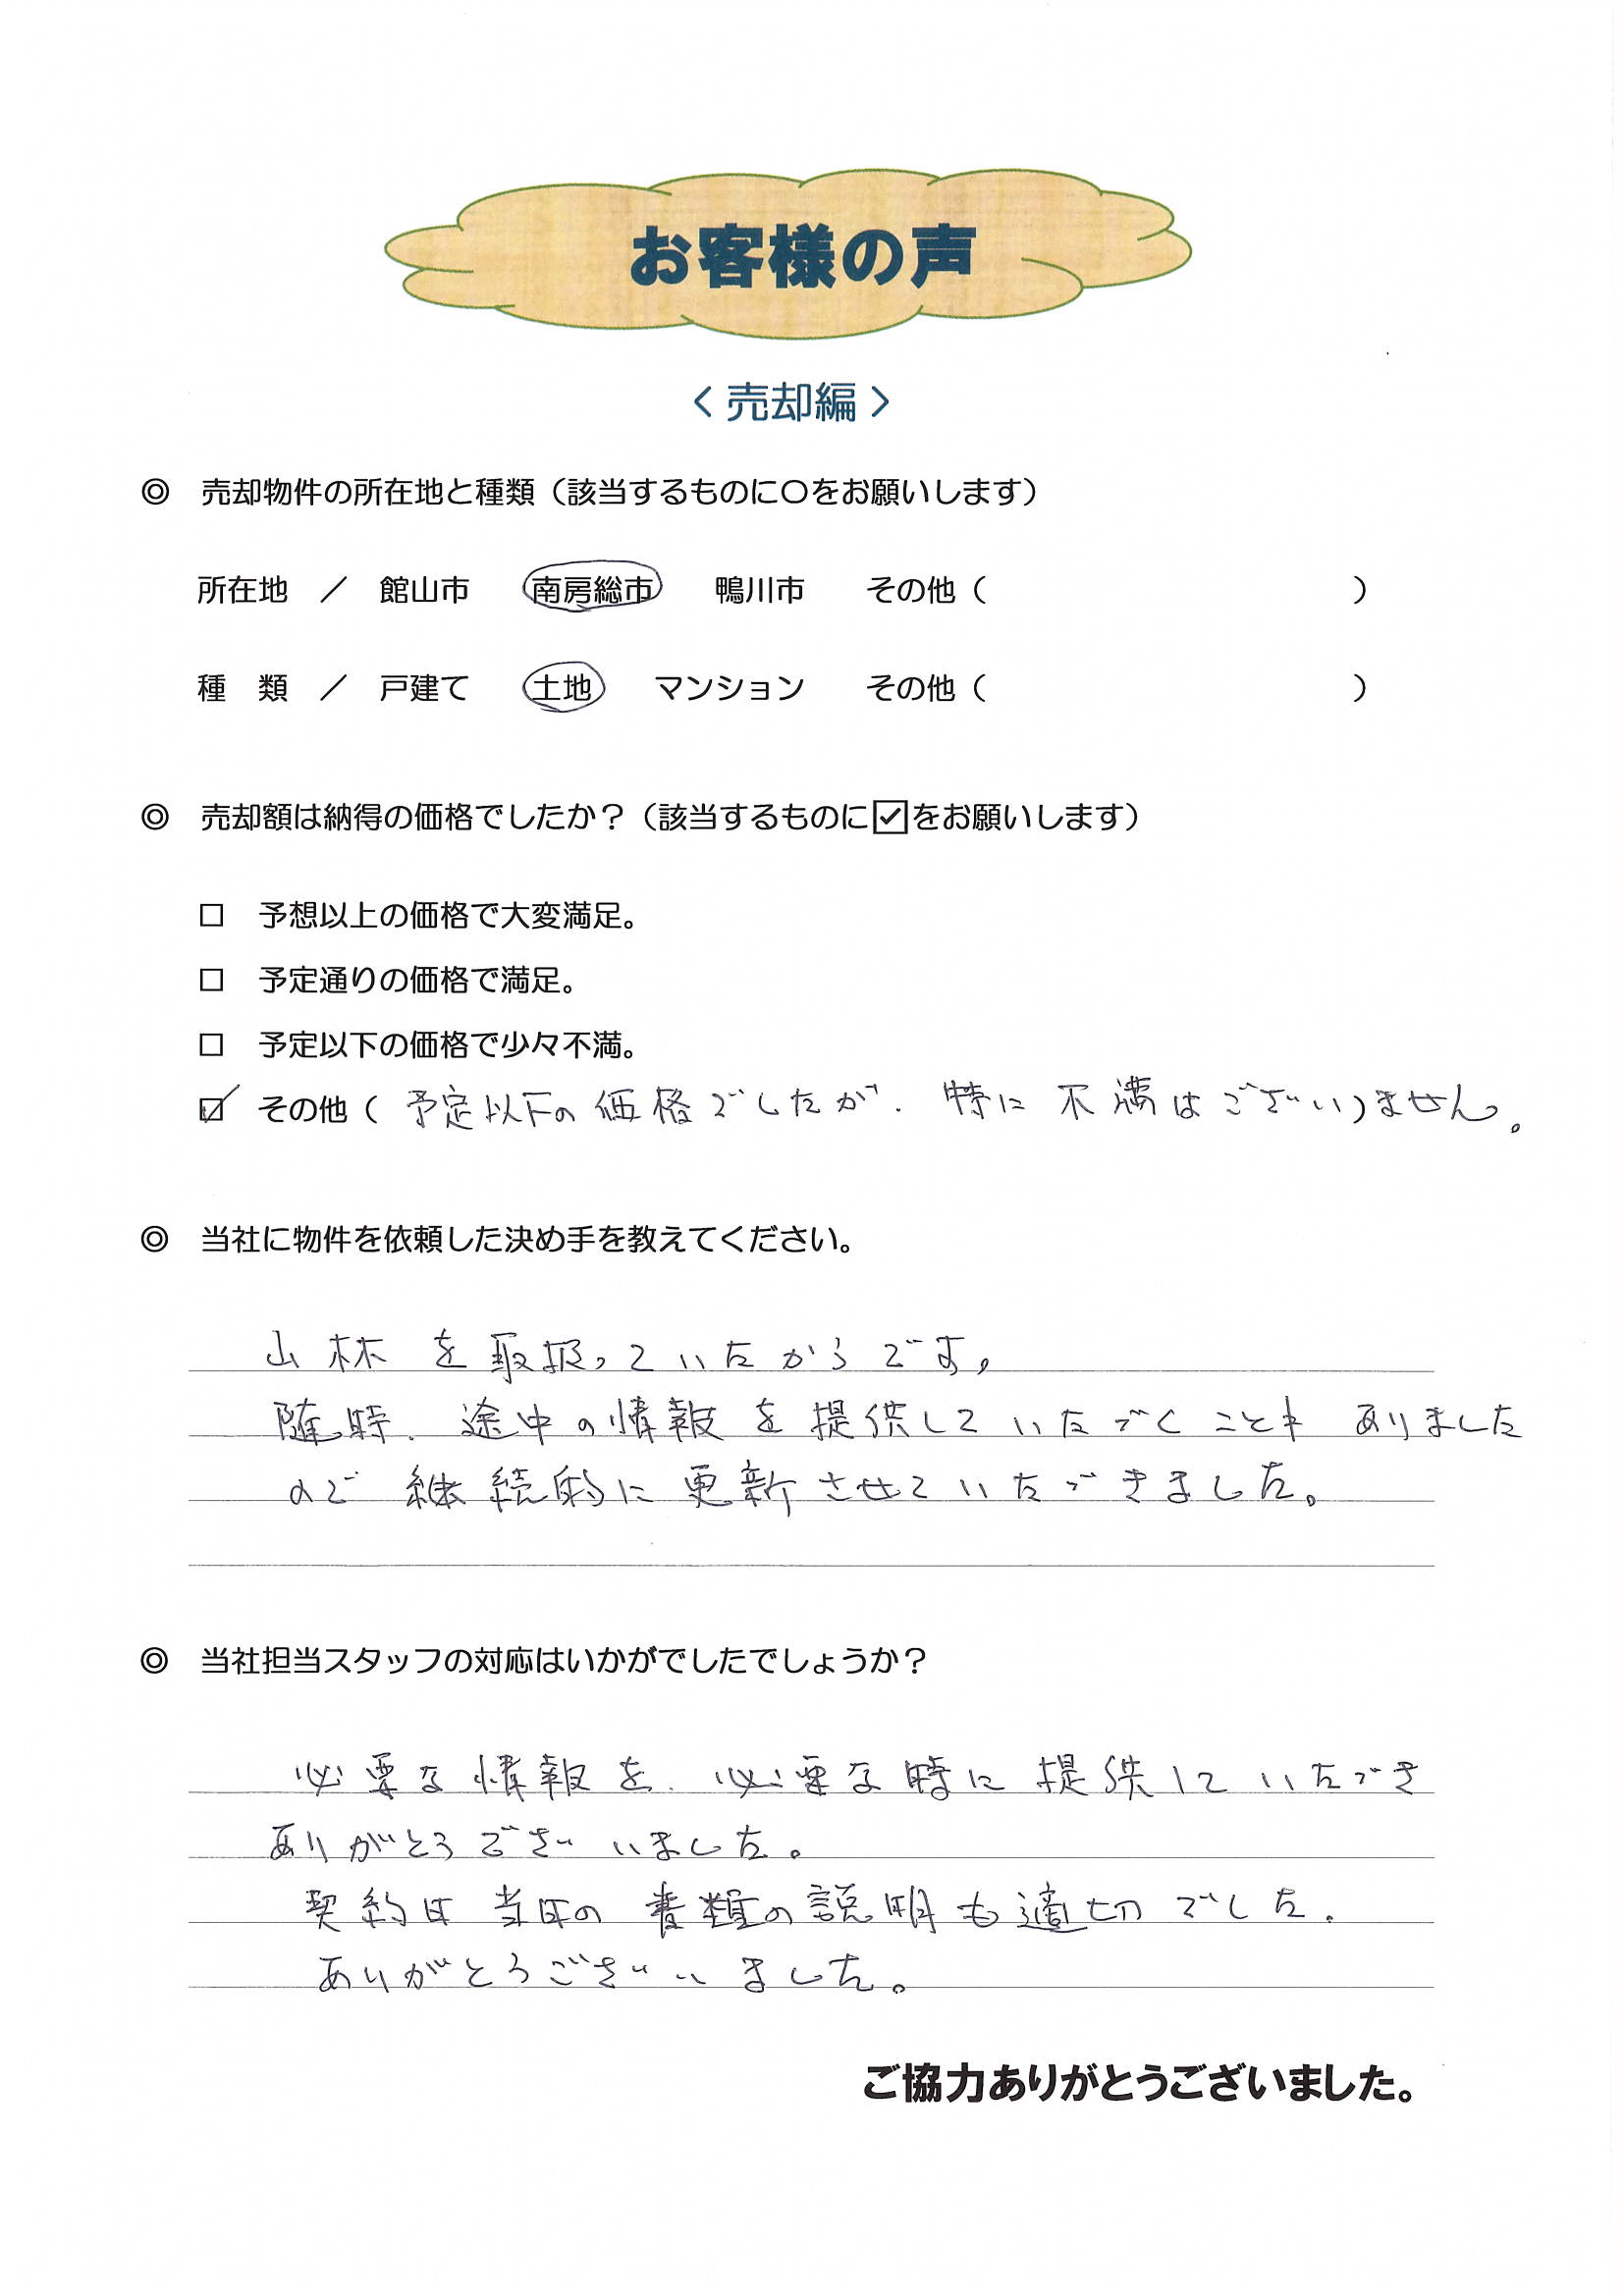 お客様の声
＜ 売却編 ＞
◎ 売却物件の所在地と種類（該当するものに〇をお願いします）
所在地 ／ 館山市 南房総市 鴨川市 その他（ ）
種 類 ／ 戸建て 土地 マンション その他（ ）
◎ 売却額は納得の価格でしたか？（該当するものに☑をお願いします）
□ 予想以上の価格で大変満足。
□ 予定通りの価格で満足。
□ 予定以下の価格で少々不満。
☑ その他（ 予定以下の価格でしたが、特に不満はございません。）
◎ 当社に物件を依頼した決め手を教えてください。
山林を取扱っていたからです。
随時、途中の情報を提供していただくことも ありました
ので 継続的に更新させていただきました。
◎ 当社担当スタッフの対応はいかがでしたでしょうか？
必要な情報を、必要な時に提供していただき
ありがとうございました。
契約日当日の書類の説明も適切でした。
ありがとうございました。
ご協力ありがとうございました。